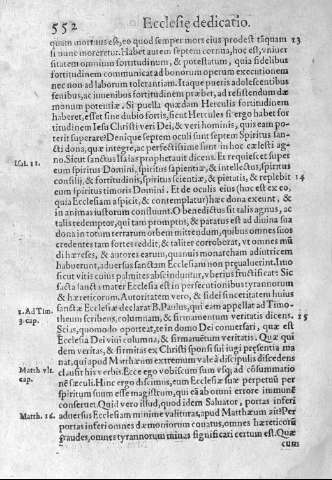 552
Ecclesię dedicatio.
quam mortuus est, eo quod semper mors eius prodest tāquam 13
si nunc moreretur. Habet autem septem cornua, hoc est, vniuer
sitatem omnium fortitudinum, & potestatum, quia fidelibus
fortitudinem communicat ad bonorum operum executionem
nec non ad laborum tolerantiam. Itaque pueris adolescentibus
senibus, ac iuuenibus fortitudinem præbet, ad resistendum dæ
monum potentiæ. Si puella quædam Herculis fortitudinem
haberet, esset sine dubio fortis, sicut Hercules si ergo habet for
titudinem Iesu Christi veri Dei, & veri hominis, quis eam po
terit superare? Denique septem oculi sunt septem Spiritus san
cti dona, quæ integre, ac perfectissime sunt in hoc cælesti ag-
Isai. 11.
no. Sicut sanctus Isaias prophetauit dicens. Et requiescet super
eum spiritus Domini, spiritus sapientiæ, & intellectus, spiritus
consilij, & fortitudinis, spiritus scientiæ, & pietatis, & replebit 14
eum spiritus timoris Domini. Et de oculis eius (hoc est ex eo,
quia Ecclesiam aspicit, & contemplatur) hæc dona exeunt, &
in animas iustorum confluunt. O benedictus sit talis agnus, ac
talis redemptor, qui tam promptus, & paratus est ad diuina sua
dona in totum terrarum orbem mittendum, quibus omnes suos
credentes tam fortes reddit, & taliter corroborat, vt omnes mū
di hæreses, & autores earum, quamuis monarcham adiutricem
habuerunt, aduersus sanctam Ecclesiam non prævaluerint. Imo
sicut vitis cuius palmites abscinduntur, vberius fructificat: Sic
facta sancta mater Ecclesia est in persecutionibus tyrannorum
& hæreticorum. Autoritatem vero, & fidei sinceritatem huius
1. Ad Tim.
3. cap.
sanctæ Ecclesiæ declarat B. Paulus, qui eam appellat ad Timo-
theum scribens, columnam, & firmamentum veritatis dicens. 15
Scias, quomodo oporteat, te in domo Dei conuersari, quæ est
Ecclesia Dei viui columna, & firmamētum veritatis. Quæ qui
dem veritas, & firmitas ex Christi sponsi sui iugi præsentia ma
nat, qui apud Matthæum extremum vale à discipulis discedens
Matth. vlt.
cap.
clausit his verbis. Ecce ego vobiscum sum vsq; ad cōsummatio
nē sæculi. Hinc ergo discimus, eum Ecclesiæ suæ perpetuū per
spiritum suum esse magistrum, qui eā ab omni errore immunē
conseruet. Quid vero illud, quod idem Saluator, portas inferi
Matth. 16.
aduersus Ecclesiam minime valituras, apud Matthæum ait? Per
portas inferi omnes dæmoniorum conatus, omnes hæreticorū
fraudes, omnes tyrannorum minas significari certum est. Quæ
cum